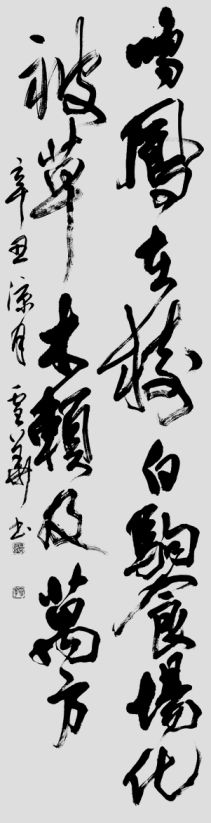 鳴鳳在樹白駒食場化
被草木賴及萬方
辛丑涼月雪華书